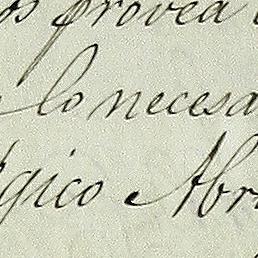 os provea
lo necesa
gico Abr